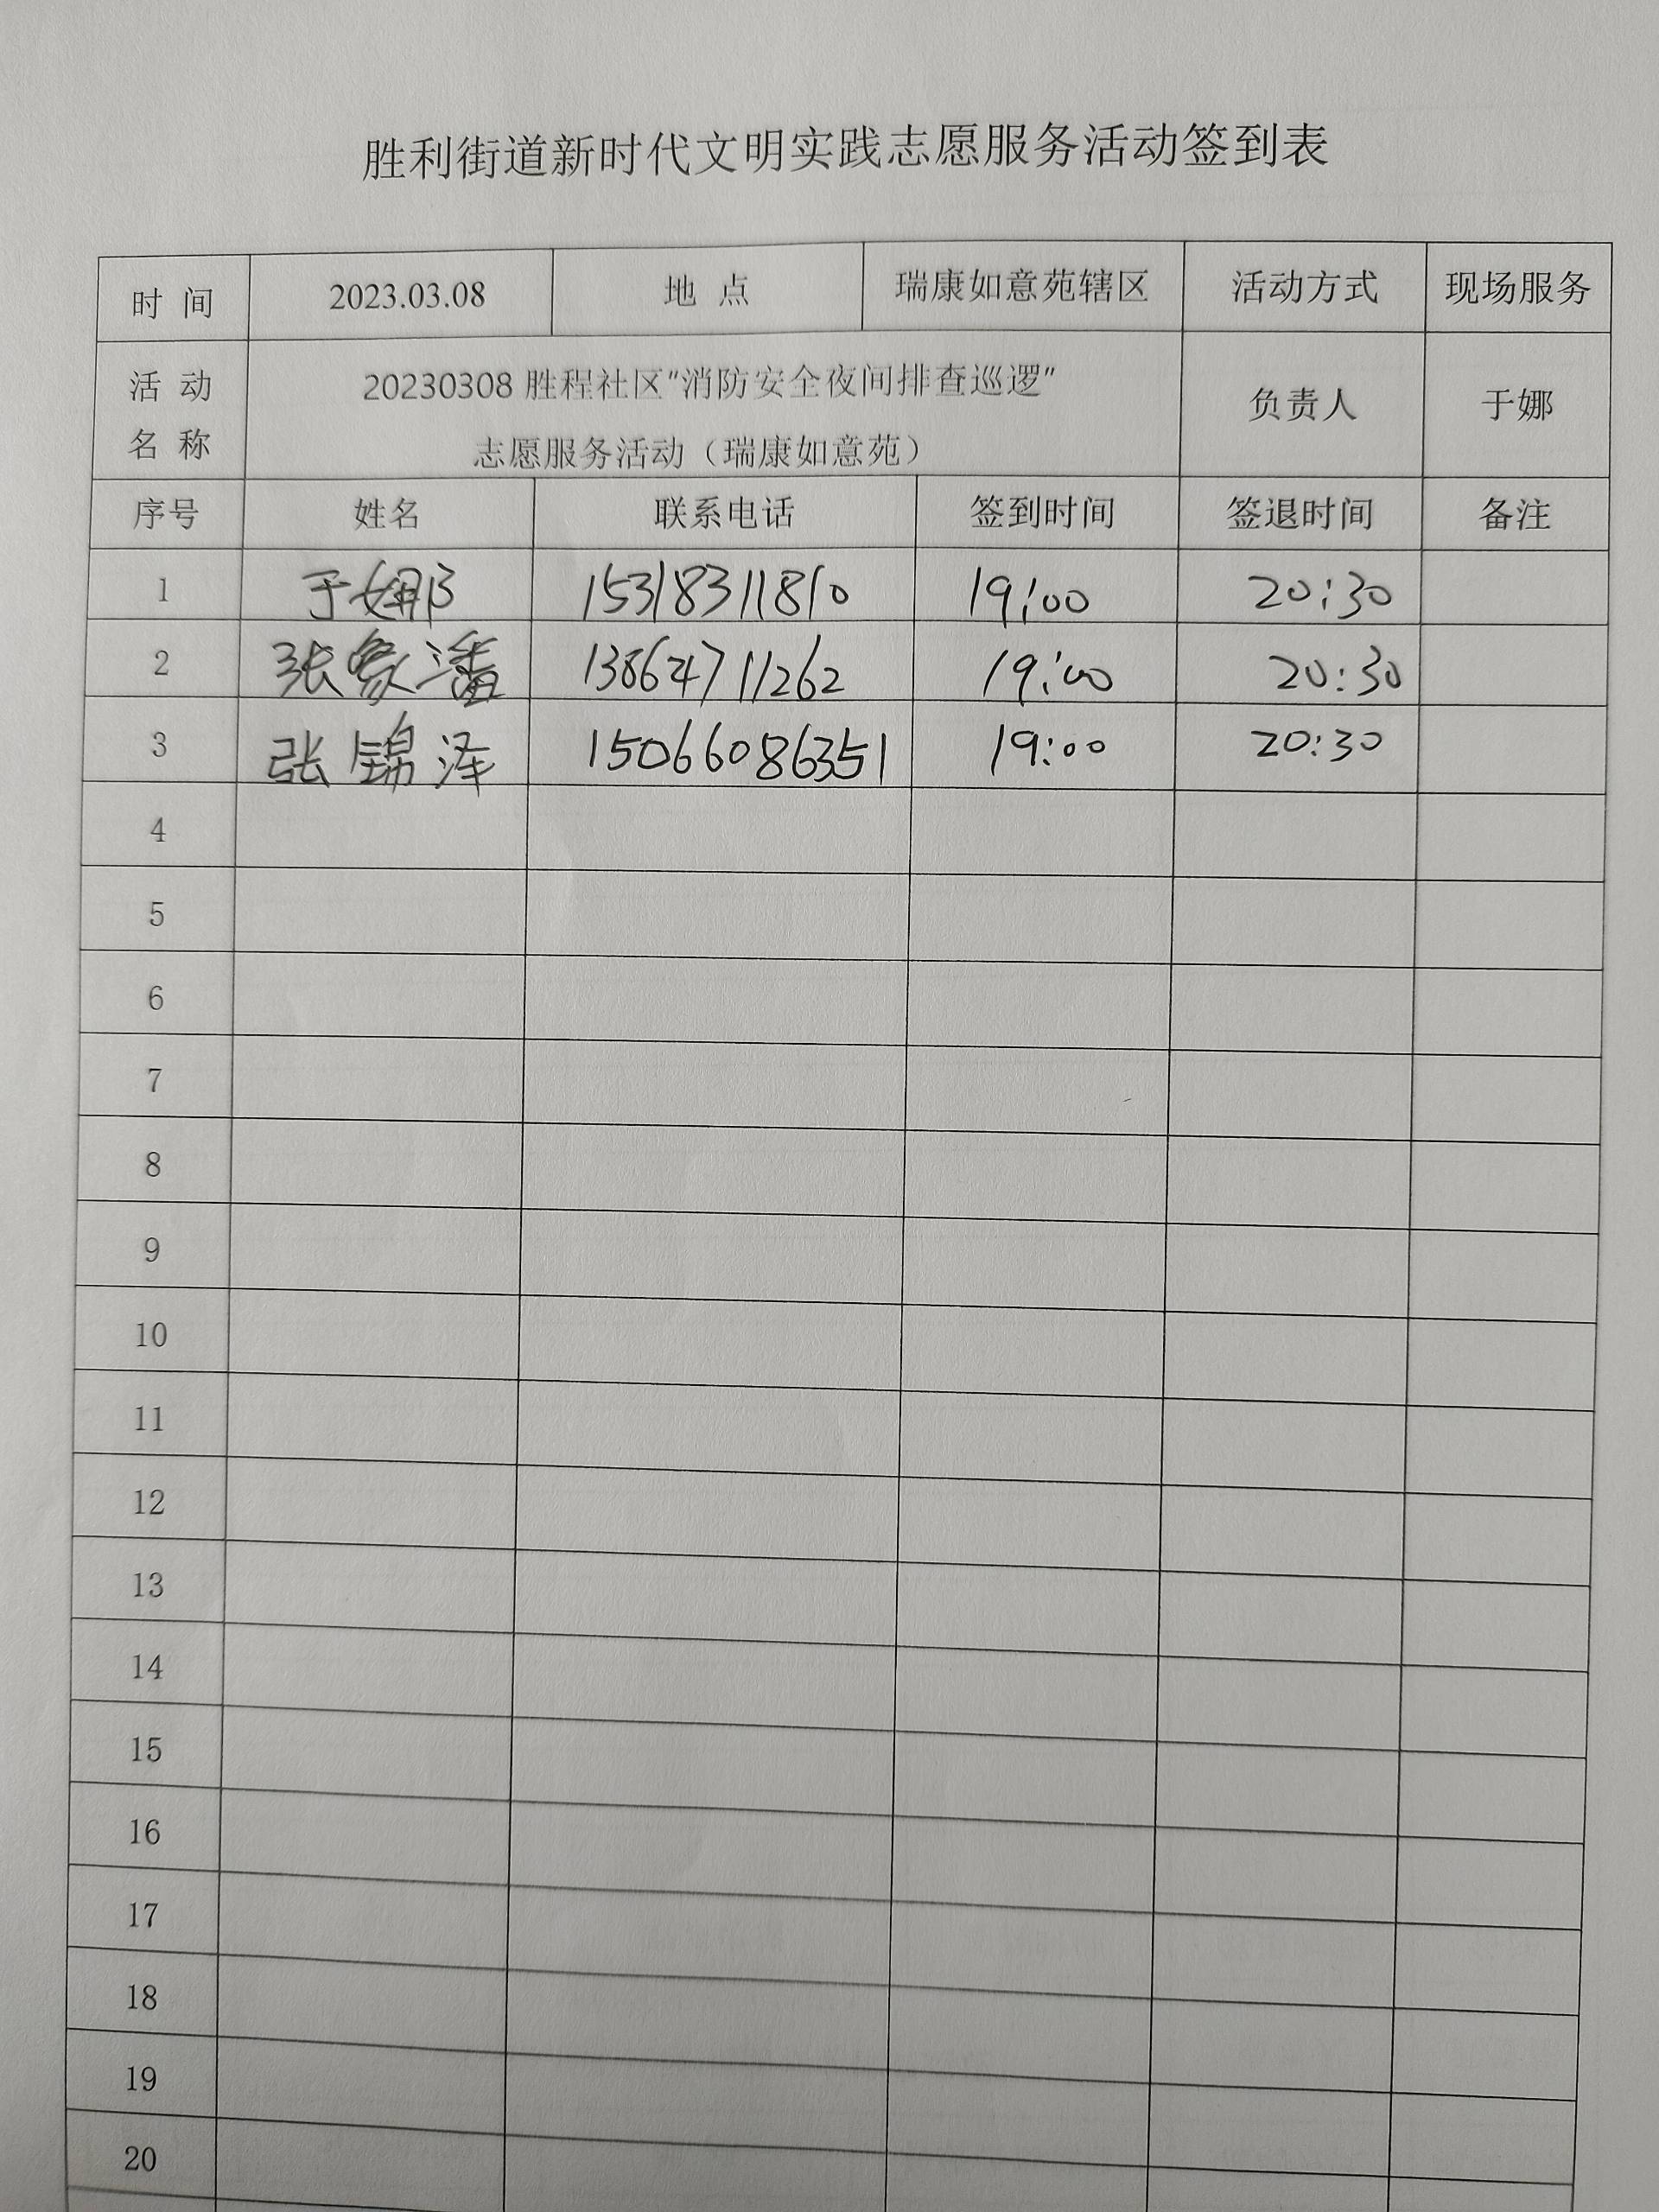 胜利街道新时代文明实践志愿服务活动签到表
时 间 2023.03.08 地 点 瑞康如意苑辖区 活动方式 现场服务
活 动
名 称
20230308 胜程社区"消防安全夜间排查巡逻"
志愿服务活动（瑞康如意苑）
负责人 于娜
序号 姓名 联系电话 签到时间 签退时间 备注
1 于娜 15318311810 19:00 20:30
2 张 13864711262 19:00 20:30
3 张锦泽 15066086351 19:00 20:30
4
5
6
7
8
9
10
11
12
13
14
15
16
17
18
19
20